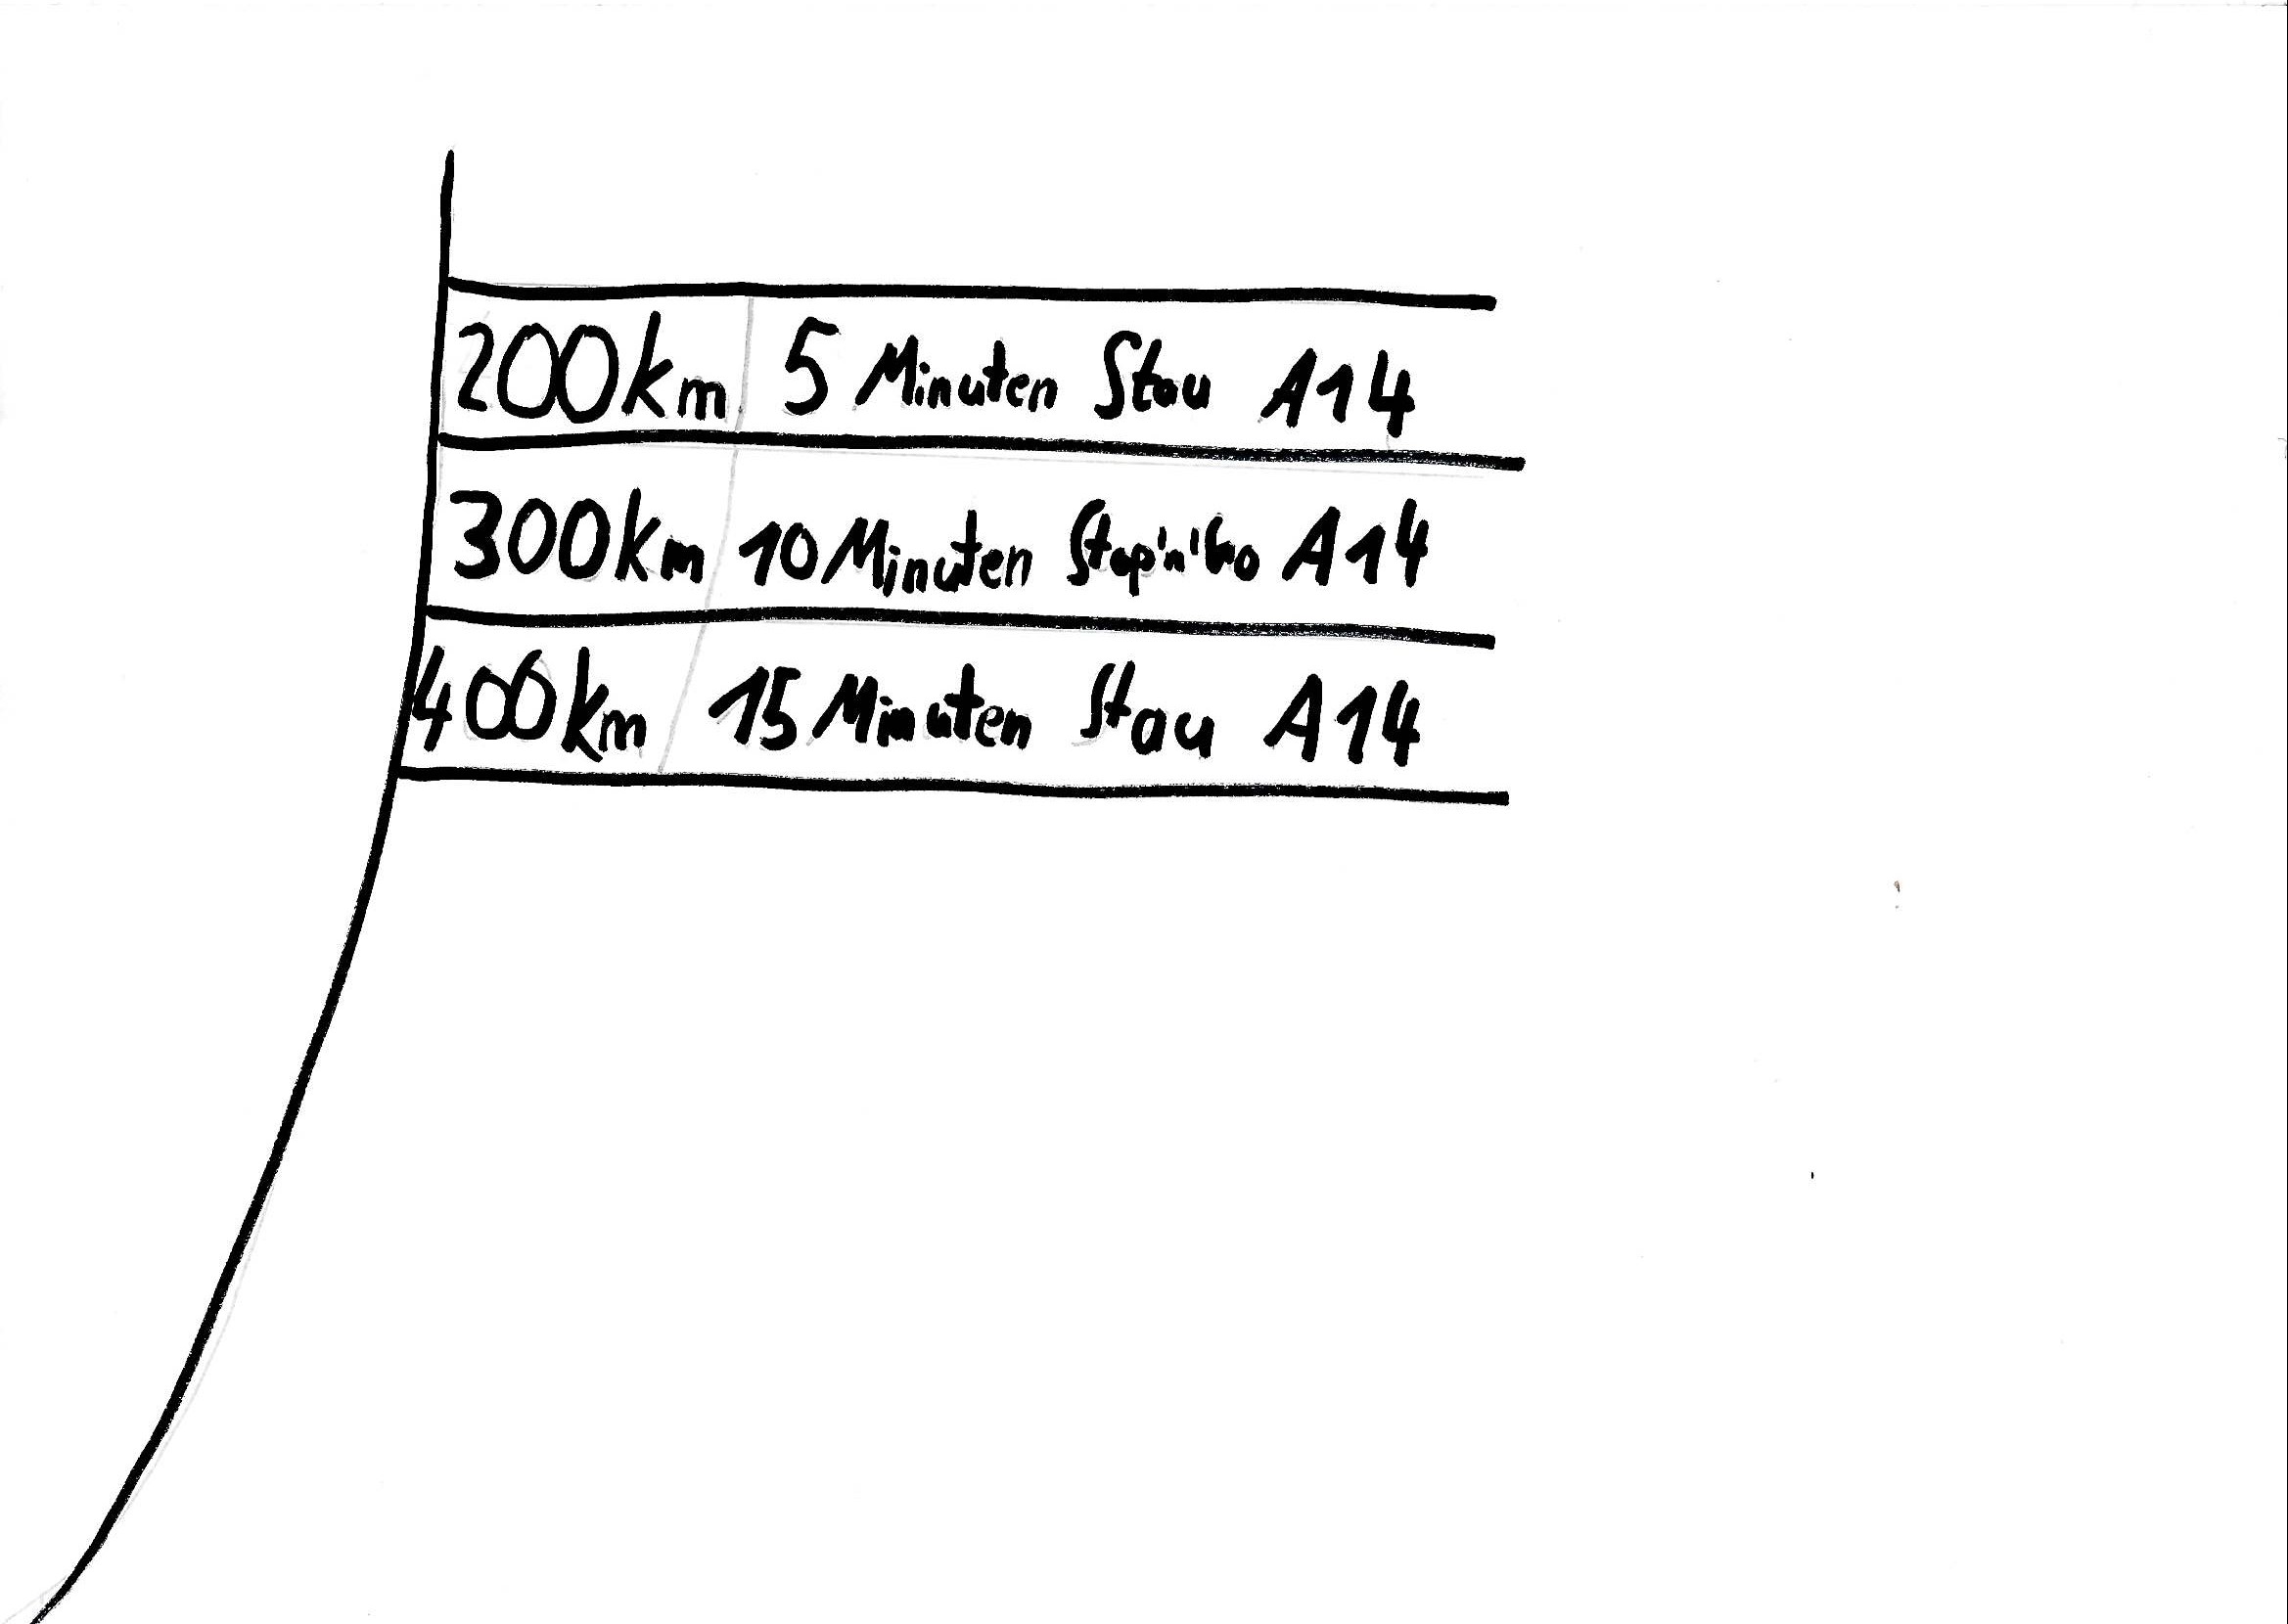 200km 5 Minuten Stau A14
300km 10 Minuten Stop'n'Go A14
400km 15 Minuten Stau A14